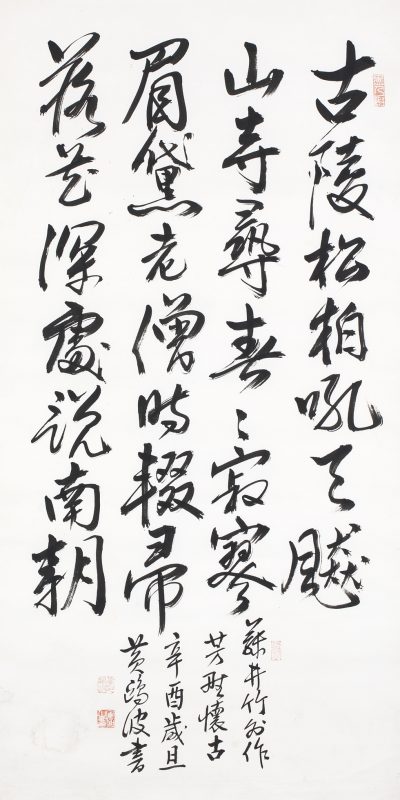 古陵松柏吼天飆
山寺尋春々寂寥
眉黛老僧時輟帚
落花深處說南朝
藤井竹外作
芳野懷古
辛酉歲旦
黃鷗波書